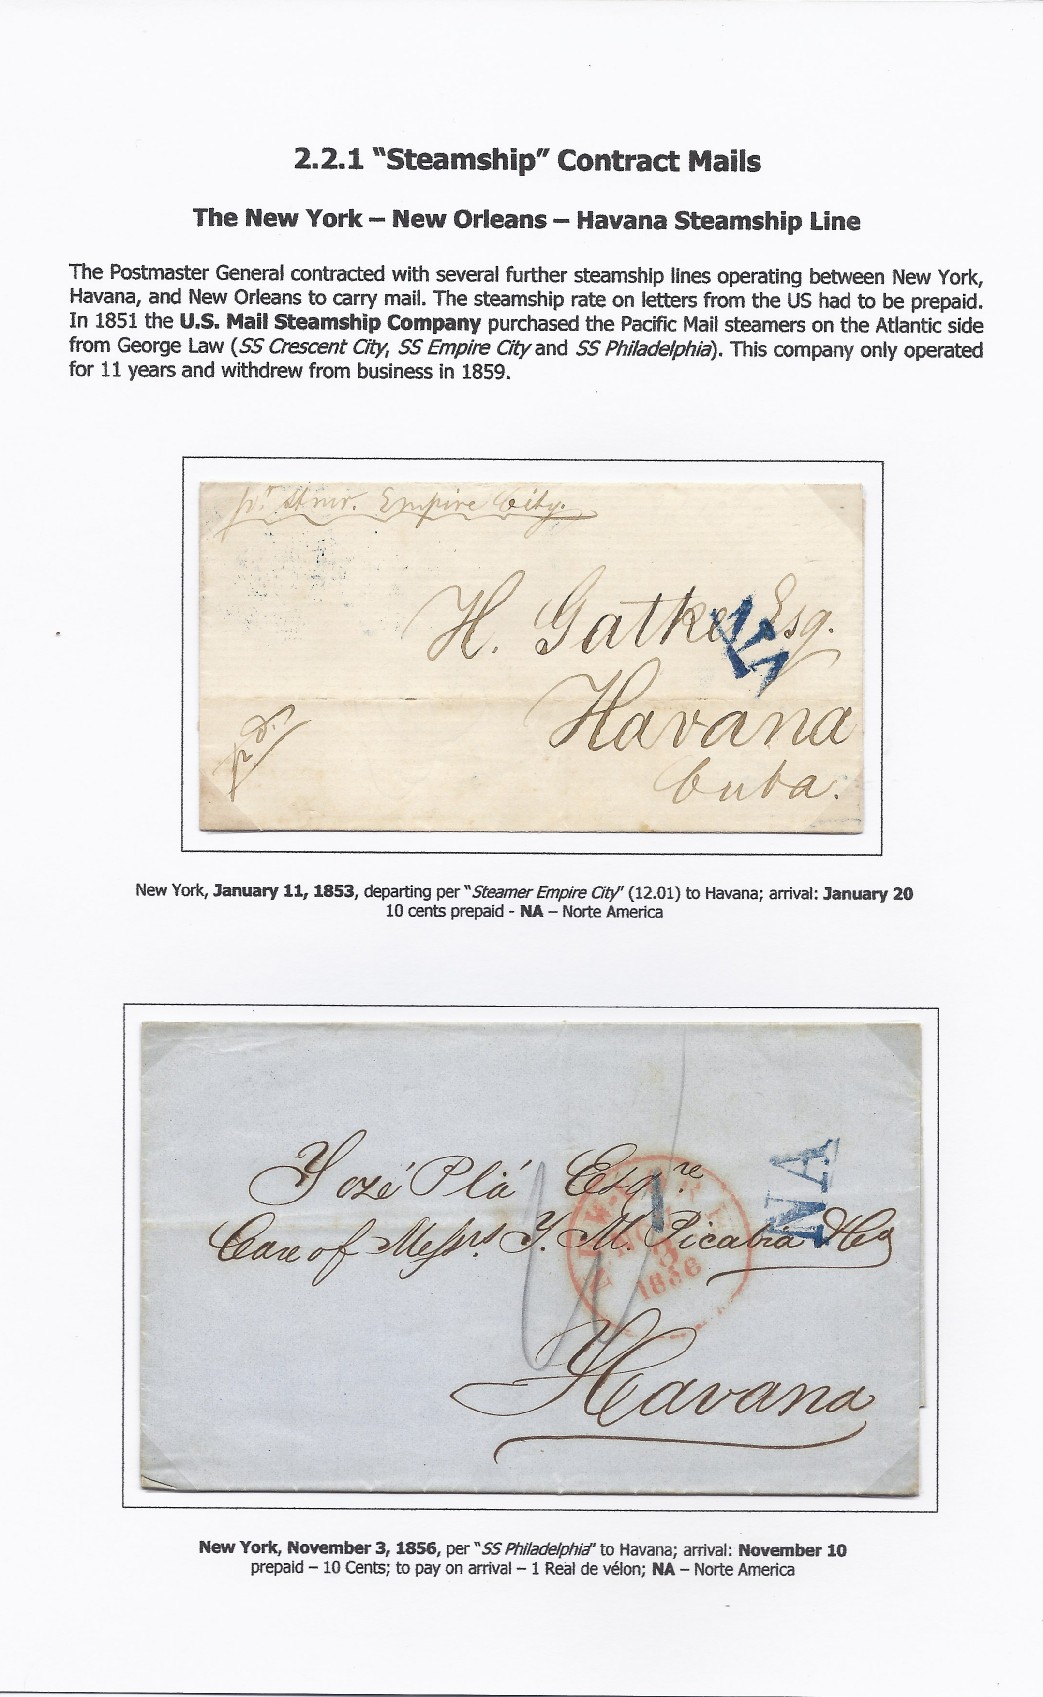 2.2.1 “Steamship” Contract Mails
The New York – New Orleans – Havana Steamship Line
The Postmaster General contracted with several further steamship lines operating between New York,
Havana, and New Orleans to carry mail. The steamship rate on letters from the US had to be prepaid.
In 1851 the U.S. Mail Steamship Company purchased the Pacific Mail steamers on the Atlantic side
from George Law (SS Crescent City, SS Empire City and SS Philadelphia). This company only operated
for 11 years and withdrew from business in 1859.
pr. Stmr. Empire City.
H. Gatke Esq.
NA
Havana
Cuba.
pd.
New York, January 11, 1853, departing per “Steamer Empire City” (12.01) to Havana; arrival: January 20
10 cents prepaid - NA – Norte America
Yozé Plá Esqre
NA
Care of Messrs Y. M. Picabia & Co
NEW-YORK
NOV
3
1856
1
Havana
New York, November 3, 1856, per “SS Philadelphia” to Havana; arrival: November 10
prepaid – 10 Cents; to pay on arrival – 1 Real de vélon; NA – Norte America